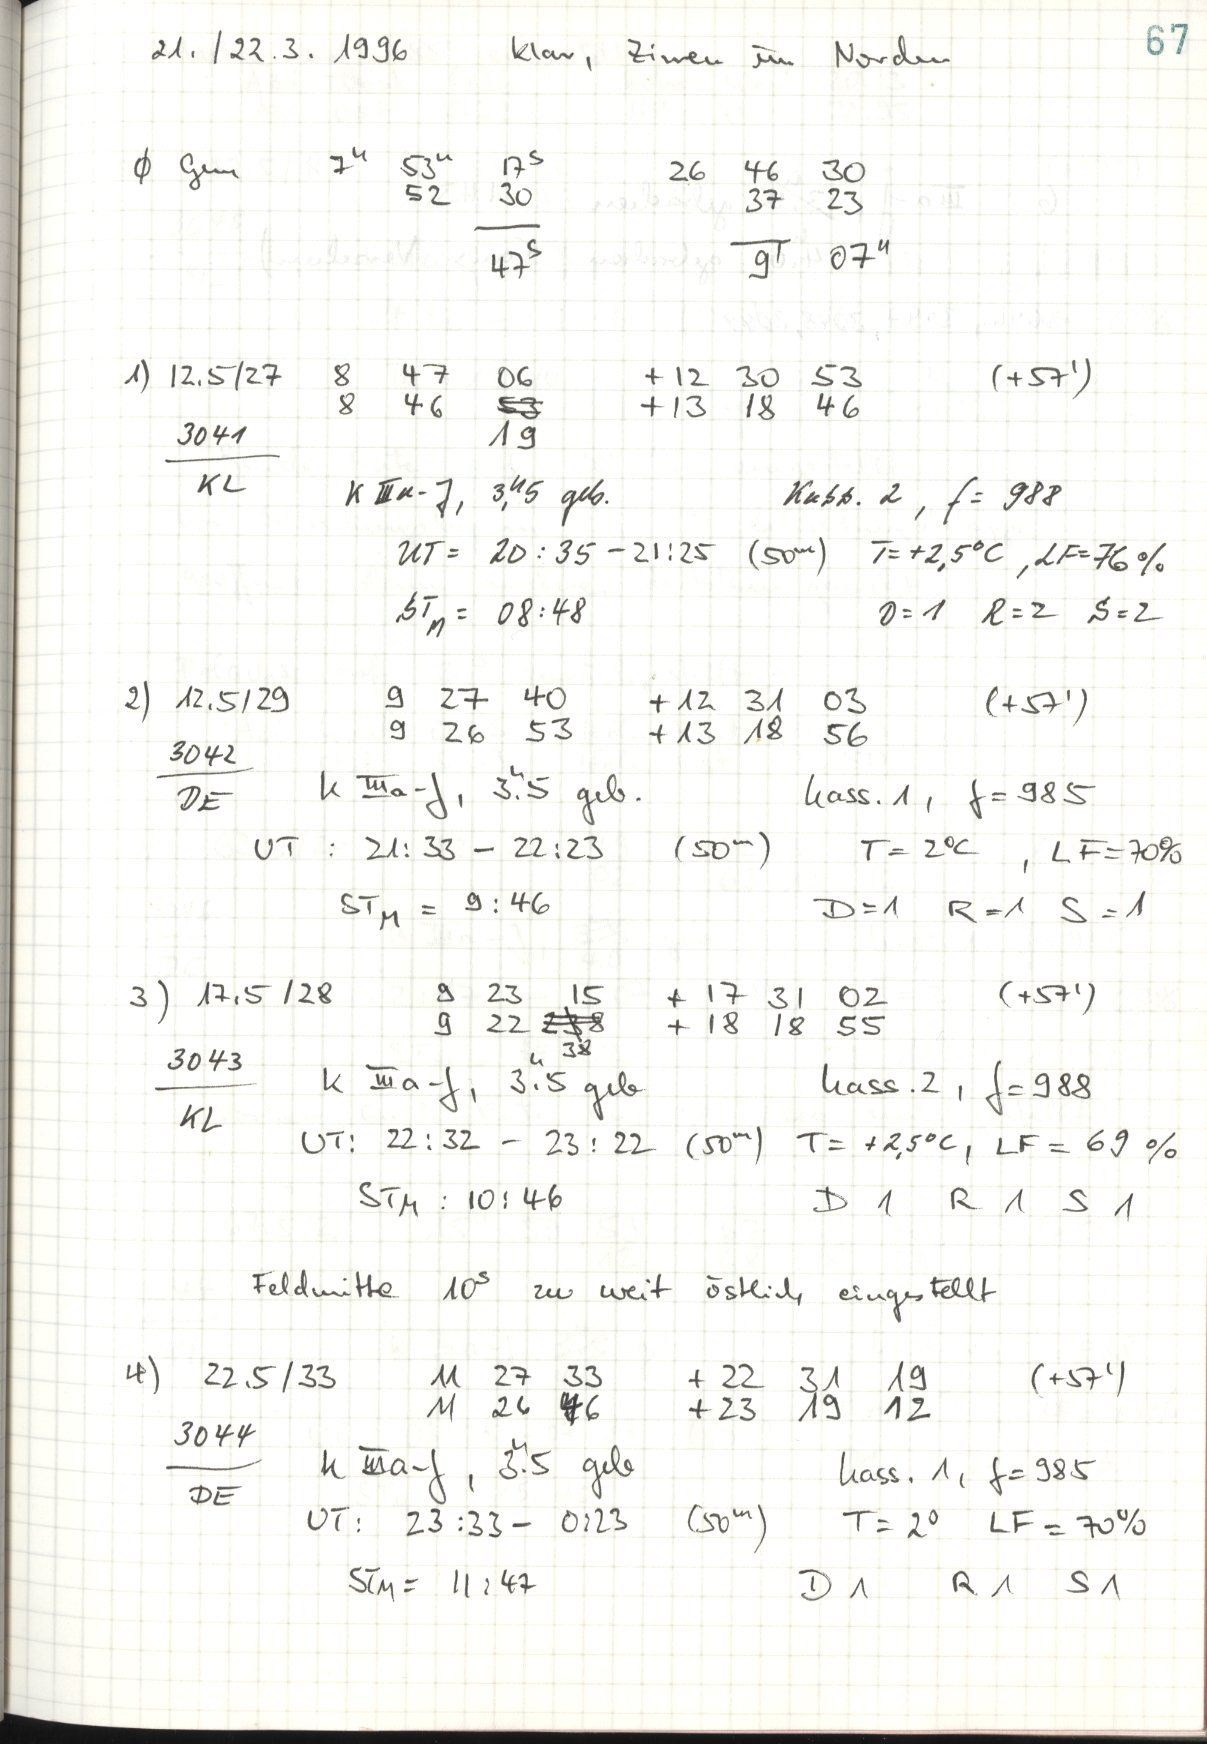 67
21./22.3. 1996 klar, Zirren im Norden
φ Gem 7ʰ 53ᵐ 17ˢ 26 46 30
52 30 37 23
47ˢ 9' 07"
1) 12.5/27 8 47 06 +12 30 53 (+57')
8 46 53 +13 18 46
3041 19
KL K IIIa-J, 3ʰ.5 geb. Kass. 2, f = 988
UT = 20:35 – 21:25 (50ᵐ) T = +2,5°C, LF = 76%
STM = 08:48 D=1 R=2 S=2
2) 12.5/29 9 27 40 +12 31 03 (+57')
9 26 53 +13 18 56
3042
DE K IIIa-J, 3ʰ.5 geb. Kass. 1, f = 985
UT : 21:33 – 22:23 (50ᵐ) T = 2°C, LF = 70%
STM = 9:46 D=1 R=1 S=1
3) 17.5/28 9 23 15 +17 31 02 (+57')
9 22 +18 18 55
3043 38
KL K IIIa-J, 3ʰ.5 geb Kass. 2, f = 988
UT: 22:32 – 23:22 (50ᵐ) T = +2,5°C, LF = 69%
STM : 10:46 D 1 R 1 S 1
Feldmitte 10ˢ zu weit östlich eingestellt
4) 22.5/33 11 27 33 +22 31 19 (+57')
11 26 46 +23 19 12
3044
DE K IIIa-J, 3ʰ.5 geb Kass. 1, f = 985
UT: 23:33 – 0:23 (50ᵐ) T = 2° LF = 70%
STM = 11:47 D 1 R 1 S 1